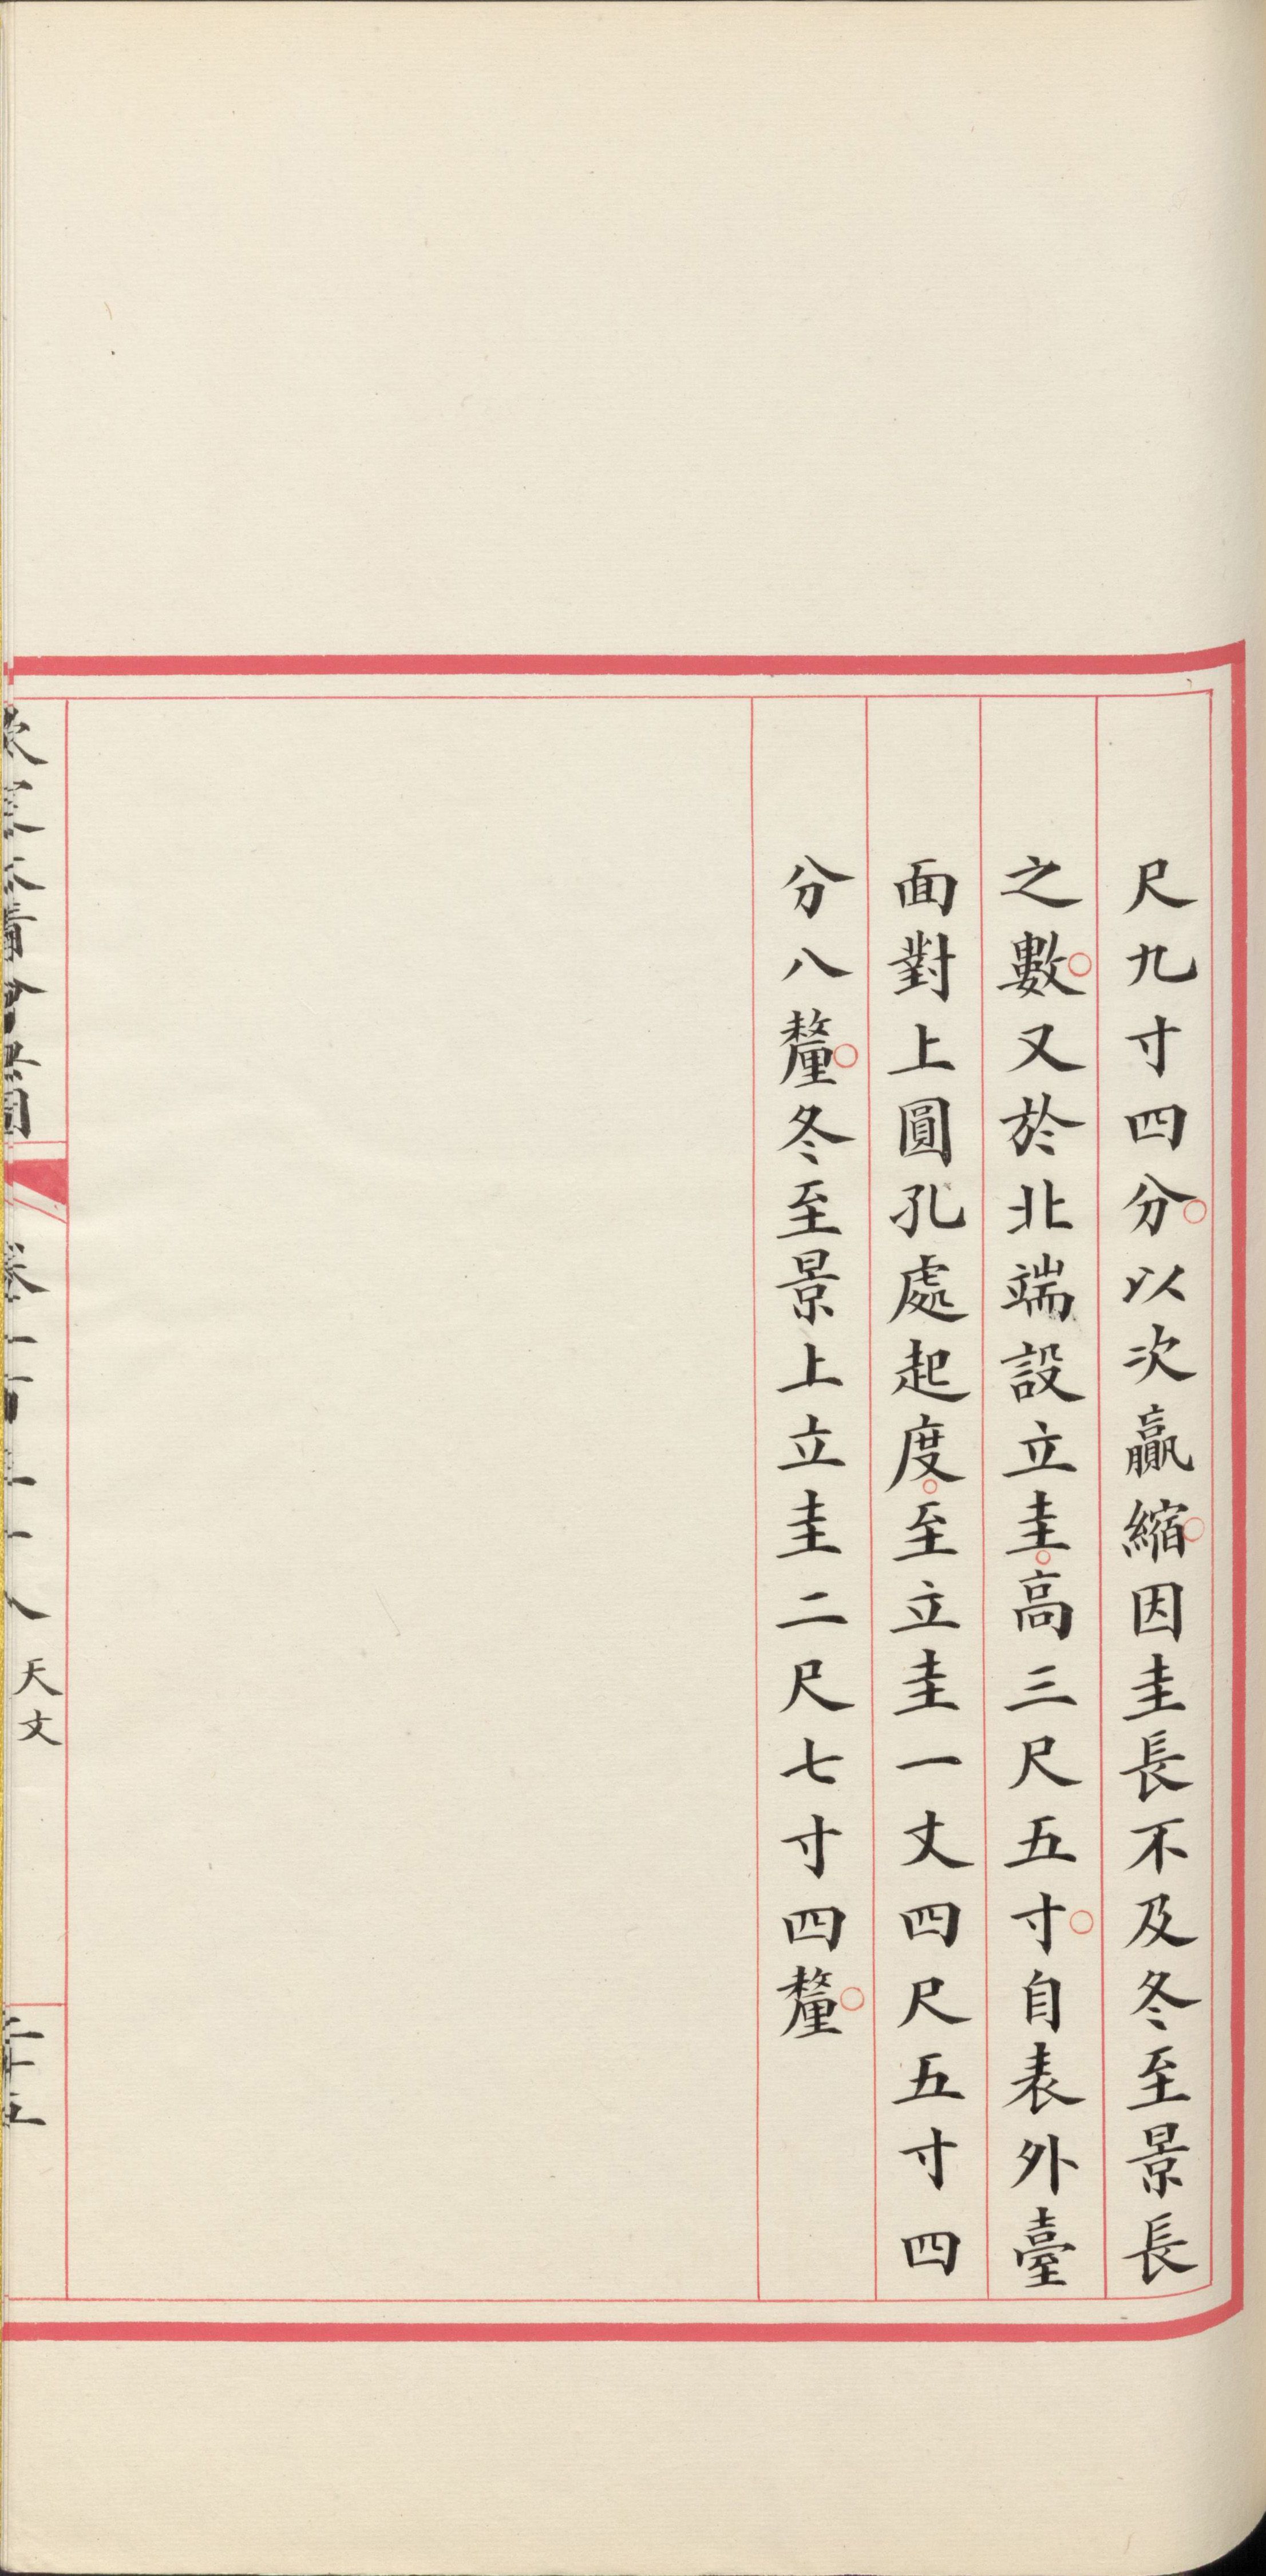 尺九寸四分。以次贏縮。因圭長不及冬至景長
之數。又於北端設立圭。高三尺五寸。自表外臺
面對上圓孔處起度。至立圭一丈四尺五寸四
分八釐。冬至景上立圭二尺七寸四釐。
天文